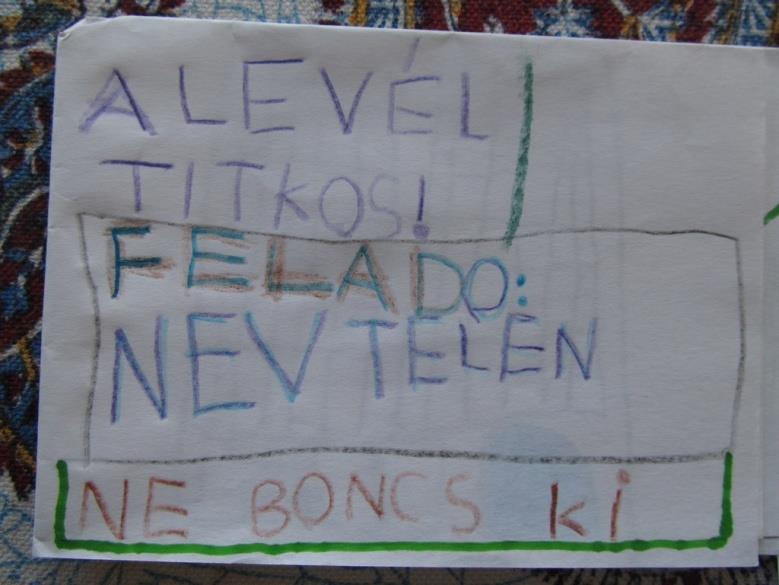 A LEVÉL
TITKOS!
FELADO:
NEV TELEN
NE BONCS Ki